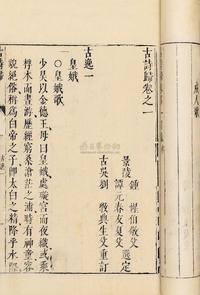 古詩歸卷之一
景陵 鍾 惺伯敬父
譚元春友夏父 選定
古吳 劉 斅典生父重訂
古逸一
皇娥
○皇娥歌
少昊以金德王母曰皇娥處璇宮而夜織或乘
桴木而晝遊歷經窮桑滄茫之浦時有神童容
貌絕俗稱爲白帝之子卽太白之精降乎水